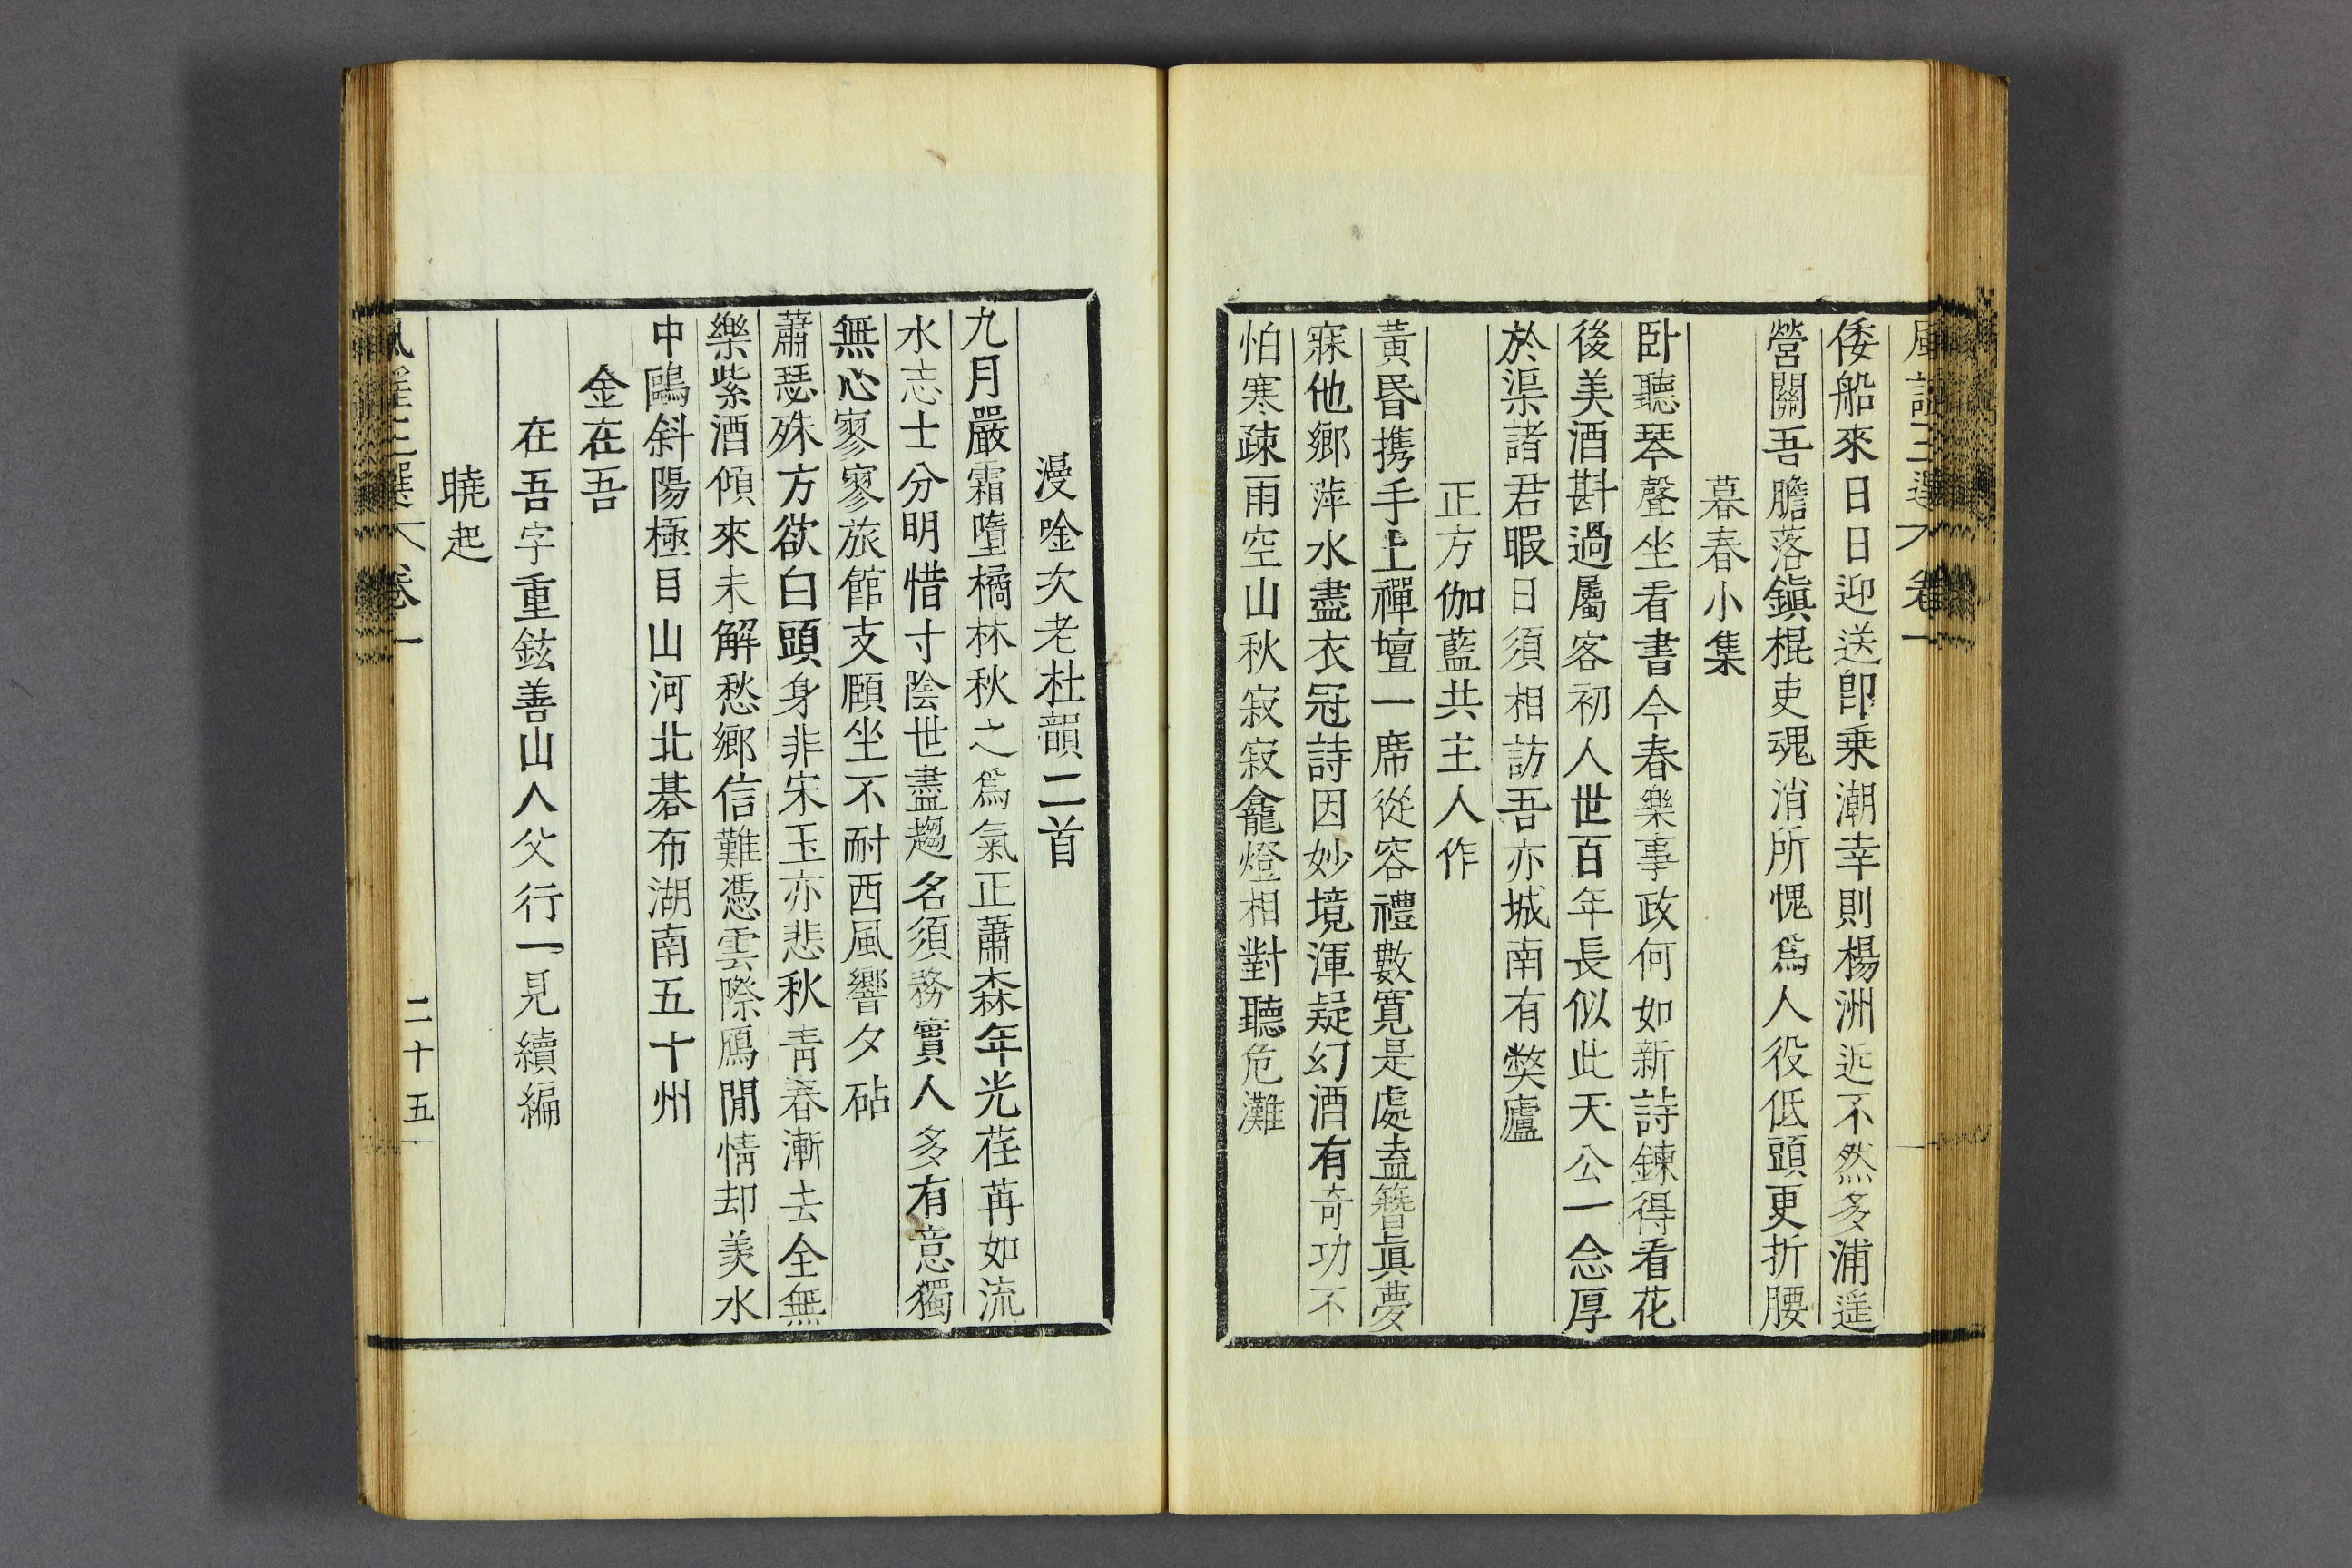 風謠三選 卷一
倭船來日日迎送卽乗潮幸則楊洲近不然多浦遥
營關吾膽落鎭棍吏魂消所愧爲人役低頭更折腰
暮春小集
卧聽琴聲坐看書今春樂事政何如新詩鍊得看花
後美酒斟過屬客初人世百年長似此天公一念厚
於渠諸君暇日須相訪吾亦城南有獘廬
正方伽藍共主人作
黃昏携手上禪壇一席從容禮數寛是處盍簪眞夢
寐他鄕萍水盡衣冠詩因妙境渾疑幻酒有奇功不
怕寒疎雨空山秋寂寂龕燈相對聽危灘
漫唫次老杜韻二首
九月嚴霜墮橘林秋之爲氣正蕭森年光荏苒如流
水志士分明惜寸陰世盡趨名須務實人多有意獨
無心寥寥旅館支頤坐不耐西風響夕砧
蕭瑟殊方欲白頭身非宋玉亦悲秋靑春漸去全無
樂紫酒傾來未解愁鄕信難憑雲際鴈閒情却羡水
中鷗斜陽極目山河北碁布湖南五十州
金在吾
在吾字重鉉善山人父行一見續編
曉起
風謠三選 卷一
二十五